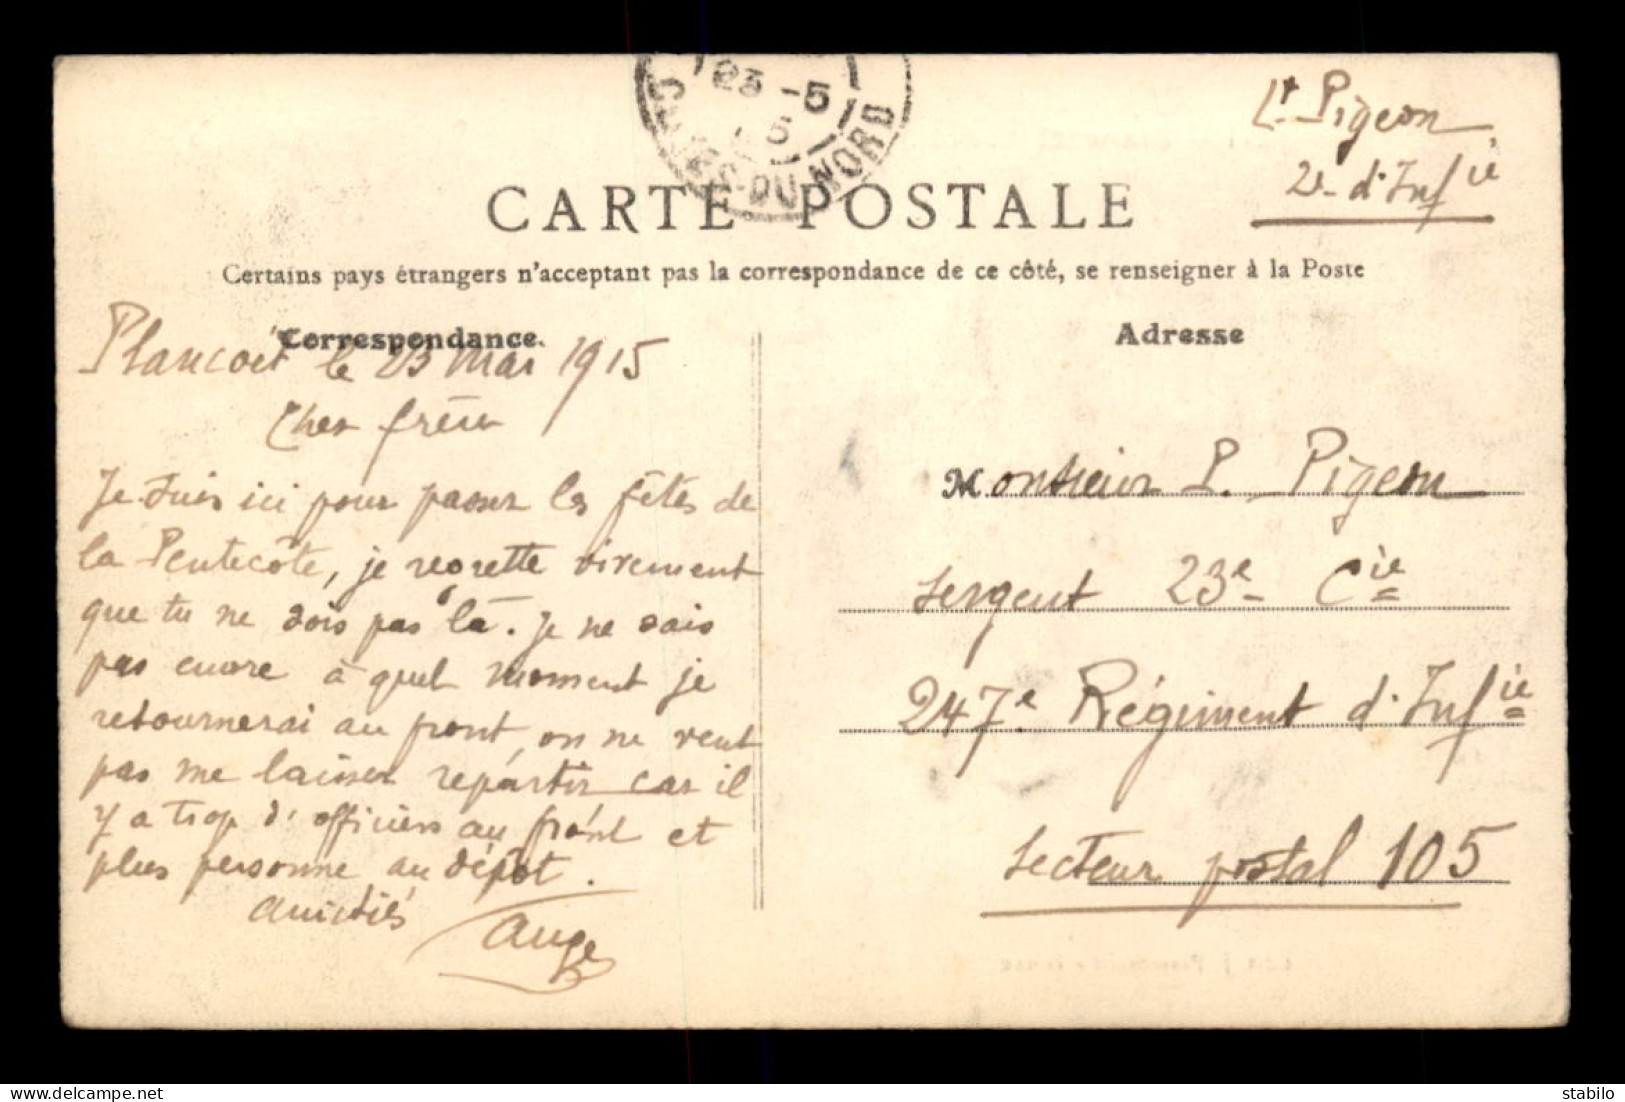 23 -5
CÔTES-DU-NORD
Lt. Pigeon
2e d'Infie
CARTE POSTALE
Certains pays étrangers n'acceptant pas la correspondance de ce côté, se renseigner à la Poste
Correspondance
Adresse
Plancoët le 23 mai 1915
Cher frère
Je suis ici pour passer les fêtes de
la Pentecôte, je regrette vivement
que tu ne sois pas là. Je ne sais
pas encore à quel moment je
retournerai au front, on ne veut
pas me laisser repartir car il
y a trop d'officiers au front et
plus personne au dépôt.
Amitiés
Ange
Monsieur P. Pigeon
Sergent 23e Cie
247e Régiment d'Infie
Secteur postal 105
stabilo